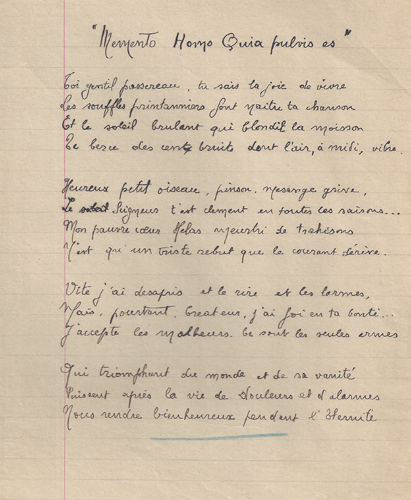 "Memento Homo Quia pulvis es"
Toi gentil passereau, tu sais la joie de vivre
Les souffles printanniers font naître ta chanson
Et le soleil brulant qui blondit la moisson
Te berce des cent bruits dont l'air, à midi, vibre.
Heureux petit oiseau, pinson, mesange grive,
Le Seigneur t'est clement en toutes les saisons...
Mon pauvre cœur Helas meurtri de trahisons
N'est qu'un triste rebut que le courant dérive.
Vite j'ai desapris et le rire et les larmes,
Mais, pourtant, Createur, j'ai foi en ta bonté...
J'accepte les malheurs. Ce sont les seules armes
Qui triomphant du monde et de sa vanité
Puissent après la vie de Douleurs et d'alarmes
Nous rendre bienheureux pendant l'Eternité